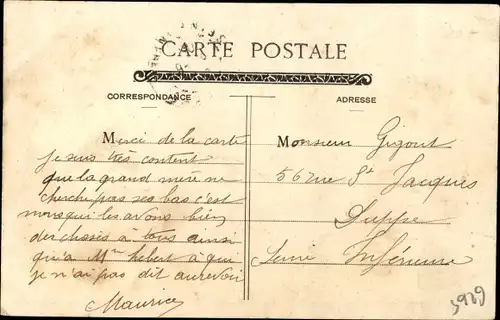 CARTE POSTALE
CORRESPONDANCE
ADRESSE
Merci de la carte
je suis très content
que la grand mère ne
cherche pas ses bas c'est
mous qui les avons bien
des choses à tous ainsi
qu'à Mr hebert à qui
je n'ai pas dit au revoir
Maurice
Monsieur Gigout
56 rue St Jacques
Dieppe
Seine Inférieure
5989